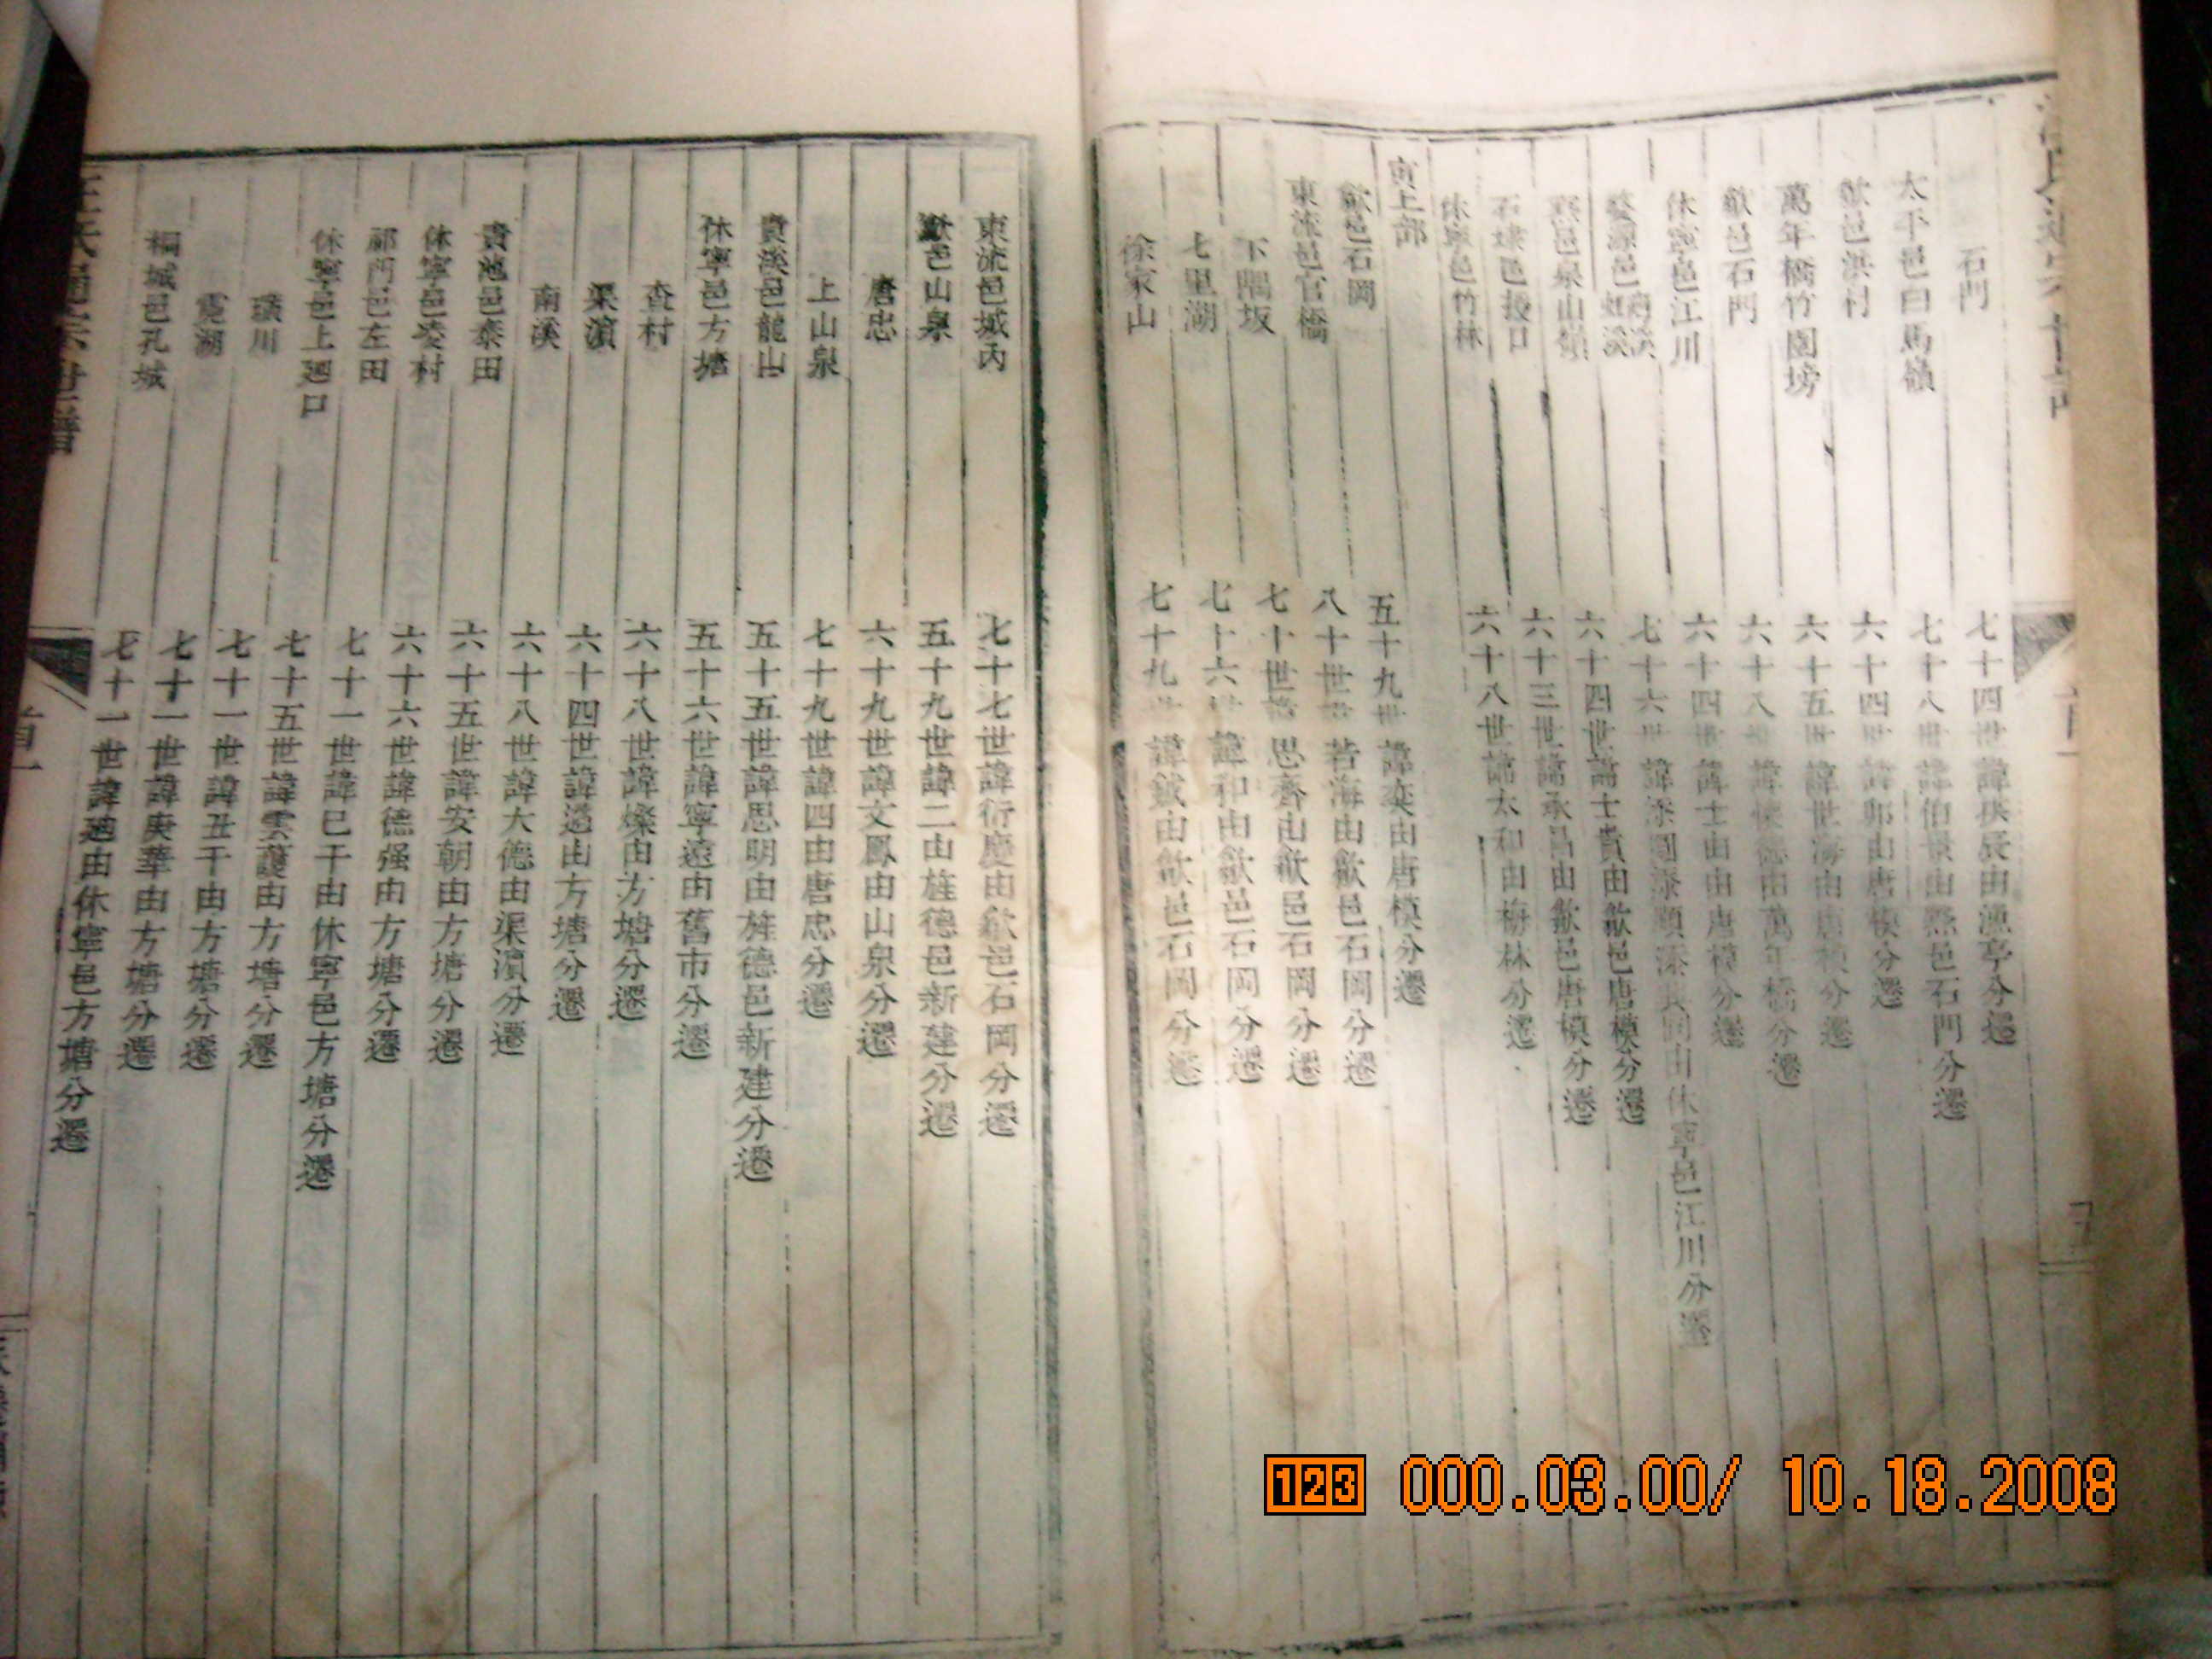 石門 七十四世諱拱辰由漁亭分遷
太平邑白馬嶺 七十八世諱伯景由黟邑石門分遷
歙邑洪村 六十四世諱卯由唐模分遷
萬年橋竹園塝 六十五世諱世海由唐模分遷
歙邑石門 六十八世諱懷德由萬年橋分遷
休寧邑江川 六十四世諱士由由唐模分遷
婺源邑 七十六世諱添圖添順添 同由休寧邑江川分遷
黟邑泉山嶺 六十四世諱士貴由歙邑唐模分遷
石埭邑 口 六十三世諱承昌由歙邑唐模分遷
休寧邑竹林 六十八世諱太和由梅林分遷
貢上部
歙邑石岡 五十九世諱奕由唐模分遷
東流邑官橋 八十世 若海由歙邑石岡分遷
下隅坂 七十世諱思齊由歙邑石岡分遷
七里湖 七十六世諱和由歙邑石岡分遷
徐家山 七十九世諱鉞由歙邑石岡分遷
東流邑城內 七十七世諱衍慶由歙邑石岡分遷
歙邑山泉 五十九世諱二由旌德邑新建分遷
唐忠 六十九世諱文鳳由山泉分遷
上山泉 七十九世諱四由唐忠分遷
貴溪邑龍山 五十五世諱思明由旌德邑新建分遷
休寧邑方塘 五十六世諱寧遠由舊市分遷
查村 六十八世諱燦由方塘分遷
渠濱 六十四世諱 由方塘分遷
南溪 六十八世諱大德由渠濱分遷
貴池邑泰田 六十五世諱安朝由方塘分遷
休寧邑凌村 六十六世諱德强由方塘分遷
祁門邑左田 七十一世諱巳干由休寧邑方塘分遷
休寧邑上廻口 七十五世諱雲護由方塘分遷
璜川 七十一世諱丑干由方塘分遷
霓湖 七十一世諱庚華由方塘分遷
桐城邑孔城 七十一世諱廻由休寧邑方塘分遷
汪氏通宗世譜
首一
五
123 000.03.00/ 10.18.2008